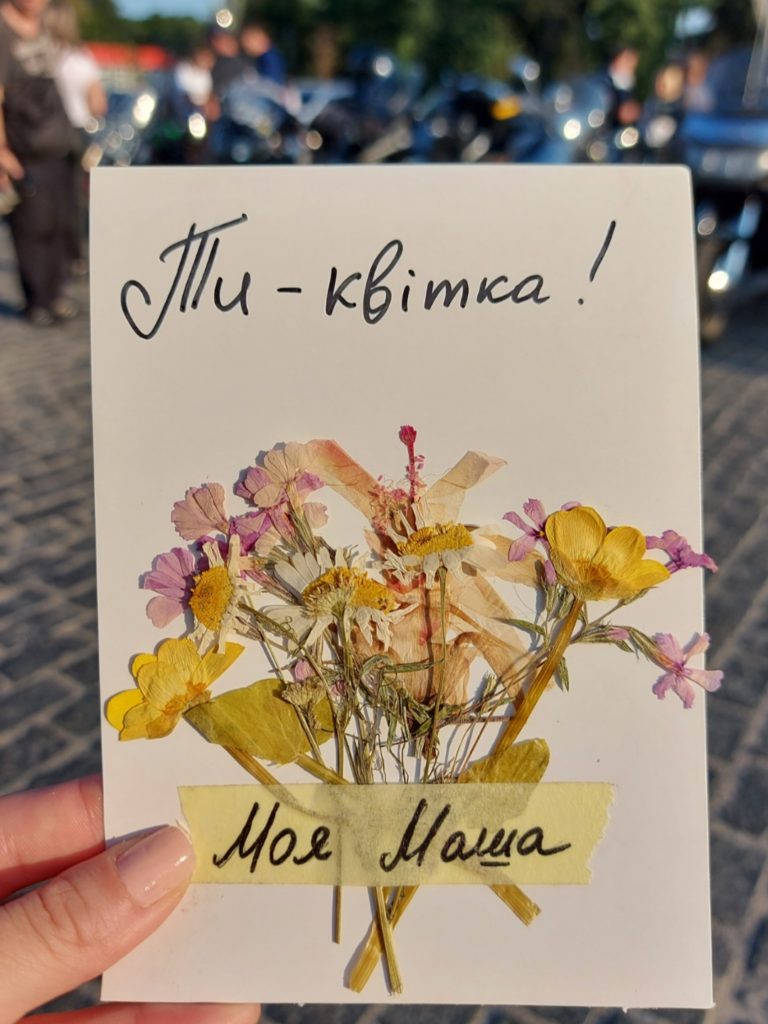 Ти - квітка!
Моя Маша